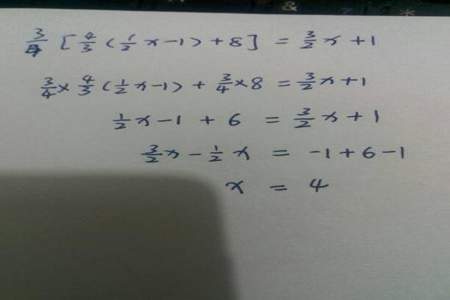 3/4 [4/3 (1/2 x-1) +8] = 3/2 x+1
3/4 × 4/3 (1/2 x-1) + 3/4 ×8 = 3/2 x+1
1/2 x-1 + 6 = 3/2 x+1
3/2 x - 1/2 x = -1+6-1
x = 4